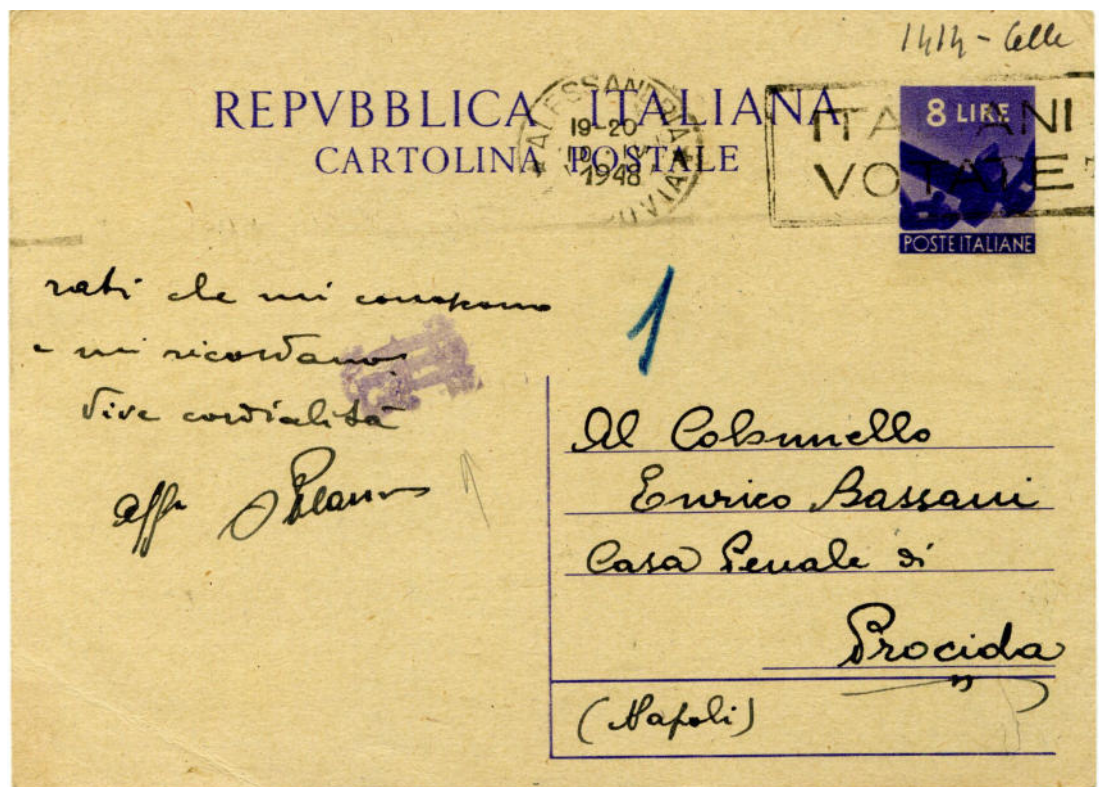 1414 - Celle
REPVBBLICA ITALIANA
CARTOLINA POSTALE
ALESSANDRIA
19-20
1948
ITALIANI
VOTATE
8 LIRE
POSTE ITALIANE
1
rati che mi
e mi ricordano
Vive cordialità
aff
Al Colonnello
Enrico Bassani
Casa Penale di
Procida
(Napoli)